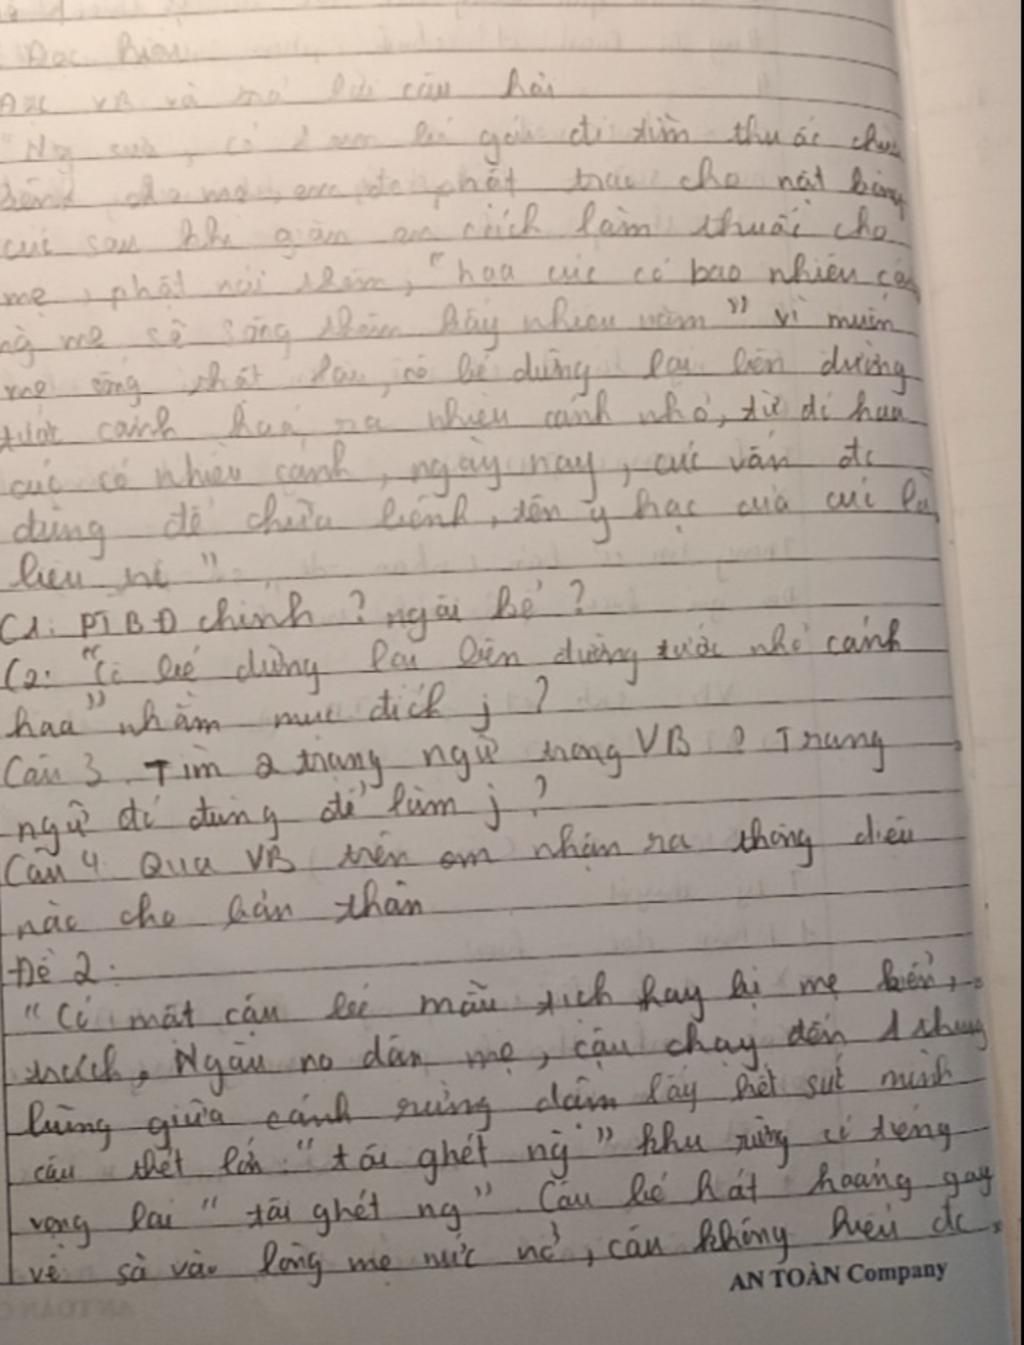 Đọc hiểu
Đọc VB và trả lời câu hỏi
"Ng xưa, có 1 em bé gái đi tìm thuốc chữa
bệnh cho mẹ, em đc phật trao cho nột bông
cúc sau khi giặn em cách làm thuốc cho
mẹ, phật nói thêm, "hoa cúc có bao nhiêu cánh
ng mẹ sẽ sống thêm bấy nhiêu năm" vì muốn
mẹ sống thật lâu, cô bé dừng lại bên đường
tước cánh hoa ra nhiều cánh nhỏ, từ đó hoa
cúc có nhiều cánh, ngày nay, cúc vẫn đc
dùng để chữa bệnh, tên y học của cúc là
liêu chi"
C1: PTBĐ chính? ngôi kể?
C2: "Cô bé dừng lại bên đường tước nhỏ cánh
hoa" nhằm mục đích j?
Câu 3. Tìm 2 trạng ngữ trong VB? Trạng
ngữ đó dùng để làm j?
Câu 4. Qua VB trên em nhận ra thông điệu
nào cho bản thân
Đề 2:
"Có một cậu bé mầu tích hay bị mẹ kiển,
trách, Ngậu no dân mẹ, cậu chạy đến 1 thung
lũng giữa cánh rừng dậm lấy hết sức mình
cậu thét lớn "tôi ghét ng" khu rừng có tiếng
vọng lại "tôi ghét ng". Cậu bé hốt hoảng quay
về sà vào lòng mẹ nức nở, cậu không hiểu đc
AN TOÀN Company